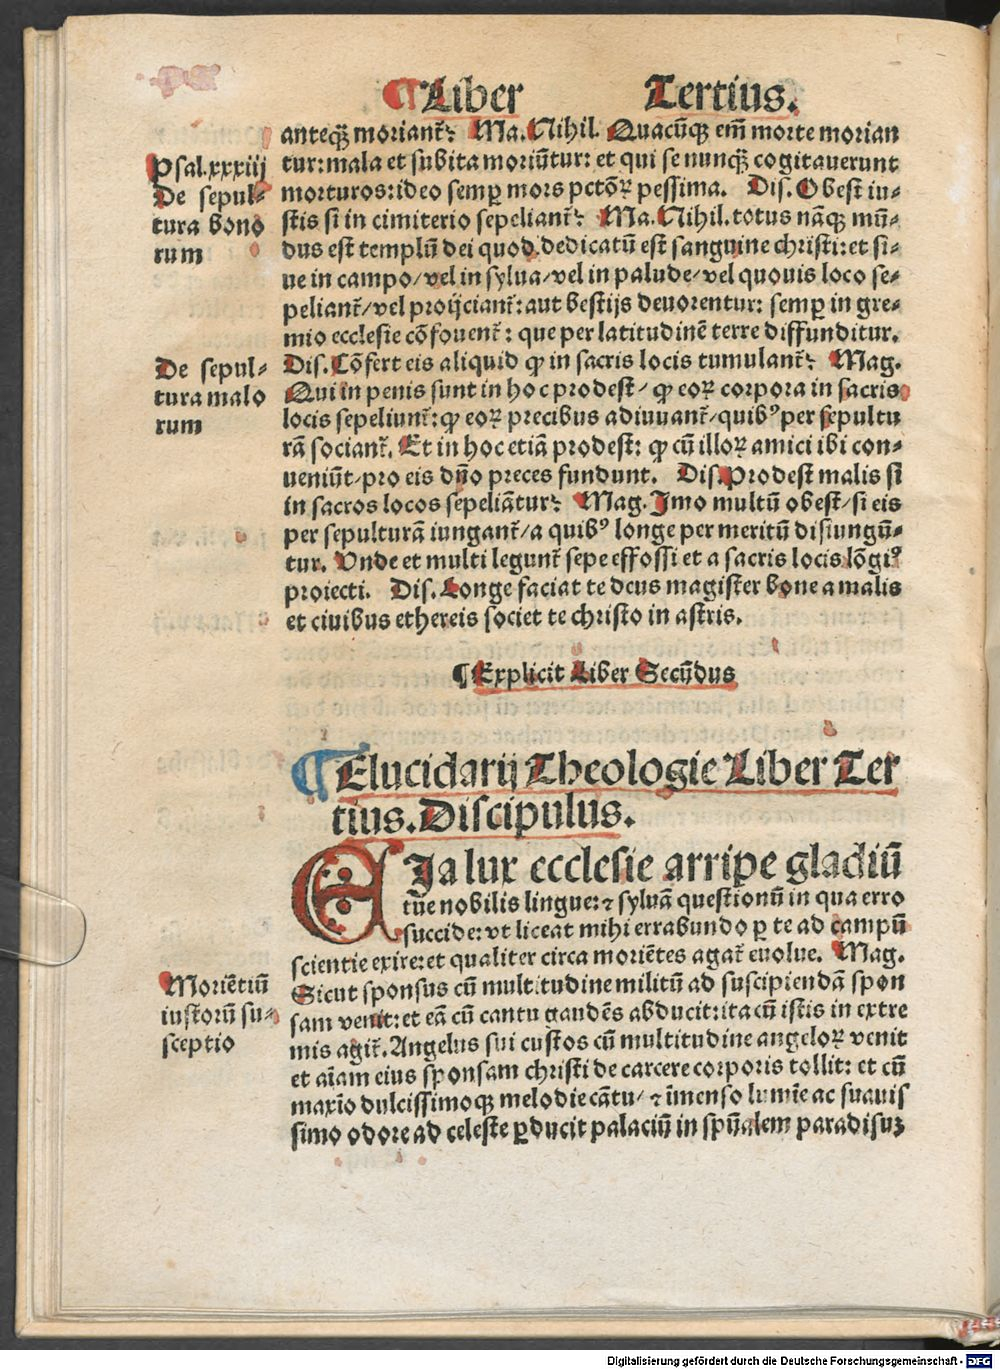 ¶ Liber Tertius.
anteq̄ꝫ moriant̄? Ma. Nihil. Quacūqꝫ em̄ morte morian
Psal.xxxiij
tur: mala et subita moriūtur: et qui se nunq̄ꝫ cogitauerunt
morturos: ideo semꝑ mors pctōꝝ pessima. Dis. Obest iu⸗
De sepul⸗
tura bono
rum
stis si in cimiterio sepeliant̄? Ma. Nihil. totus nāqꝫ mū⸗
dus est templū dei quod dedicatū est sanguine christi: et si⸗
ue in campo/ vel in sylua/ vel in palude/ vel quouis loco se⸗
peliant̄/ vel proijciant̄: aut bestijs deuorentur: semꝑ in gre⸗
mio ecclesie cōfouent̄: que per latitudinē terre diffunditur.
De sepul⸗
tura malo
rum
Dis. Cōfert eis aliquid ꝙ in sacris locis tumulant̄? Mag.
Qui in penis sunt in hoc prodest/ ꝙ eoꝝ corpora in sacris
locis sepeliunt̄: ꝙ eoꝝ precibus adiuuant̄/ quibꝰ per sepultu
rā sociant̄. Et in hoc etiā prodest: ꝙ cū illoꝝ amici ibi con⸗
ueniūt/ pro eis dn̄o preces fundunt. Dis. Prodest malis si
in sacros locos sepeliātur? Mag. Imo multū obest/ si eis
per sepulturā iungant̄/ a quibꝰ longe per meritū disiungū⸗
tur. Vnde et multi legunt̄ sepe effossi et a sacris locis lōgiꝰ
proiecti. Dis. Longe faciat te deus magister bone a malis
et ciuibus ethereis societ te christo in astris.
¶ Explicit Liber Secūdus
¶ Elucidarij Theologie Liber Ter
tius. Discipulus.
EIa lux ecclesie arripe gladiū
tue nobilis lingue: ⁊ syluā questionū in qua erro
succide: vt liceat mihi errabundo ꝑ te ad campū
scientie exire: et qualiter circa moriētes agat̄ euolue. Mag.
Moriētiū
iustorū su⸗
sceptio
Sicut sponsus cū multitudine militū ad suscipiendā spon
sam venit: et eā cū cantu gaudēs abducit: ita cū istis in extre
mis agit̄. Angelus sui custos cū multitudine angeloꝝ venit
et aīam eius sponsam christi de carcere corporis tollit: et cū
maxīo dulcissimoqꝫ melodie cātu/ ⁊ īmenso lumīe ac suauis
simo odore ad celeste ꝑducit palaciū in spūalem paradisuꝫ
Digitalisierung gefördert durch die Deutsche Forschungsgemeinschaft - DFG